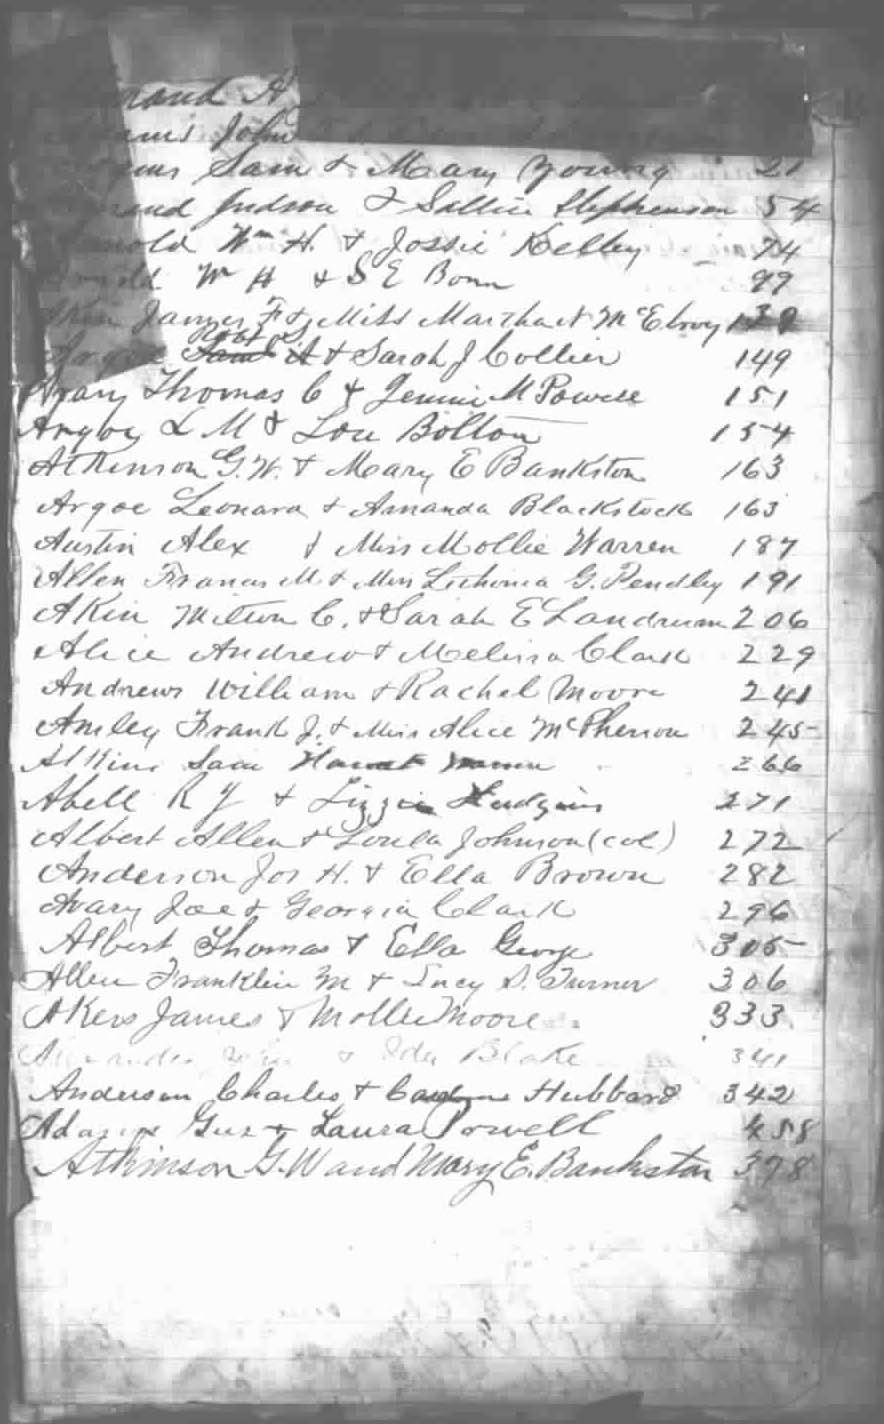 John
Sam & Mary Young 21
Judson & Sallie Stephenson 54
Arnold Wm H. & Jossie Kelley 74
Wm H & S E Bonn 99
James F & Miss Martha McElroy 139
Argoe A & Sarah J Collier 149
Avary Thomas C & Jennie M Powell 151
Argoe L M & Lou Bolton 154
Atkinson G. W. & Mary E Bankston 163
Argoe Leonara & Amanda Blackstock 163
Austin Alex & Miss Mollie Warren 187
Allen Francis M. & Miss G. Pendley 191
Akin Milton C. & Sarah E Landrum 206
Alice Andrew & Melissa Clark 229
Andrews William & Rachel Moore 241
Ansley Frank J. & Miss Alice McPherson 245
Sam 266
Abell R J & Lizzie Hudgins 271
Albert Allen & Loula Johnson (col) 272
Anderson Jos H. & Ella Brown 282
Avary Joe & Georgia Clark 296
Albert Thomas & Ella George 305
Allen Franklin M & Lucy D. Turner 306
Akers James & Mollie Moore 333
& Ida Blake 341
Anderson Charles & Hubbard 342
Adams Gus & Laura Powell 458
Atkinson G. W and Mary E. Bankston 398